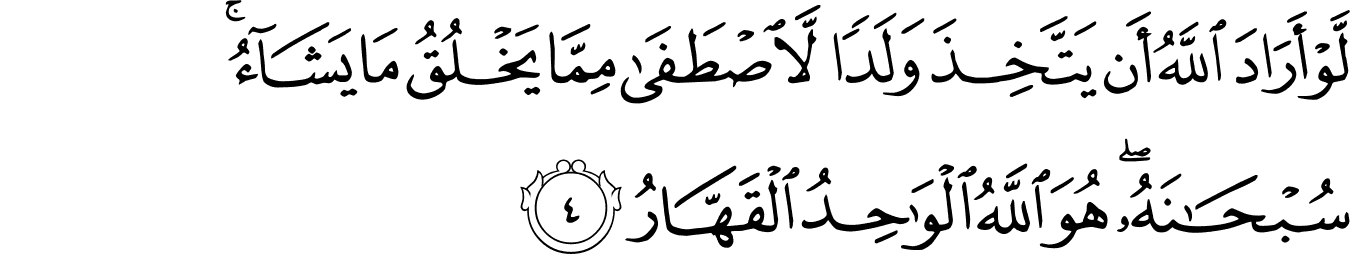 لَّوْ أَرَادَ ٱللَّهُ أَن يَتَّخِذَ وَلَدًا لَّٱصْطَفَىٰ مِمَّا يَخْلُقُ مَا يَشَآءُ ۚ
سُبْحَـٰنَهُۥ ۖ هُوَ ٱللَّهُ ٱلْوَٰحِدُ ٱلْقَهَّارُ ٤